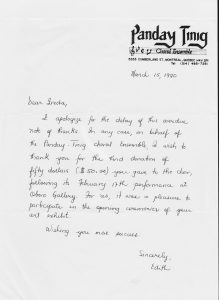 Panday Tinig
Choral Ensemble
5655 CUMBERLAND ST., MONTREAL, QUEBEC
March 15, 1990
Dear
I apologize for the delay of this overdue
note of thanks. In any case, on behalf of
the Panday-Tinig Choral Ensemble I wish to
thank you for the kind donation of
fifty dollars ($50.00) you gave to the choir,
following its February 17th performance at
Gallery. For us, it was a pleasure to
participate in the opening ceremonies of your
art exhibit.
Wishing you more success.
Sincerely,
Edith